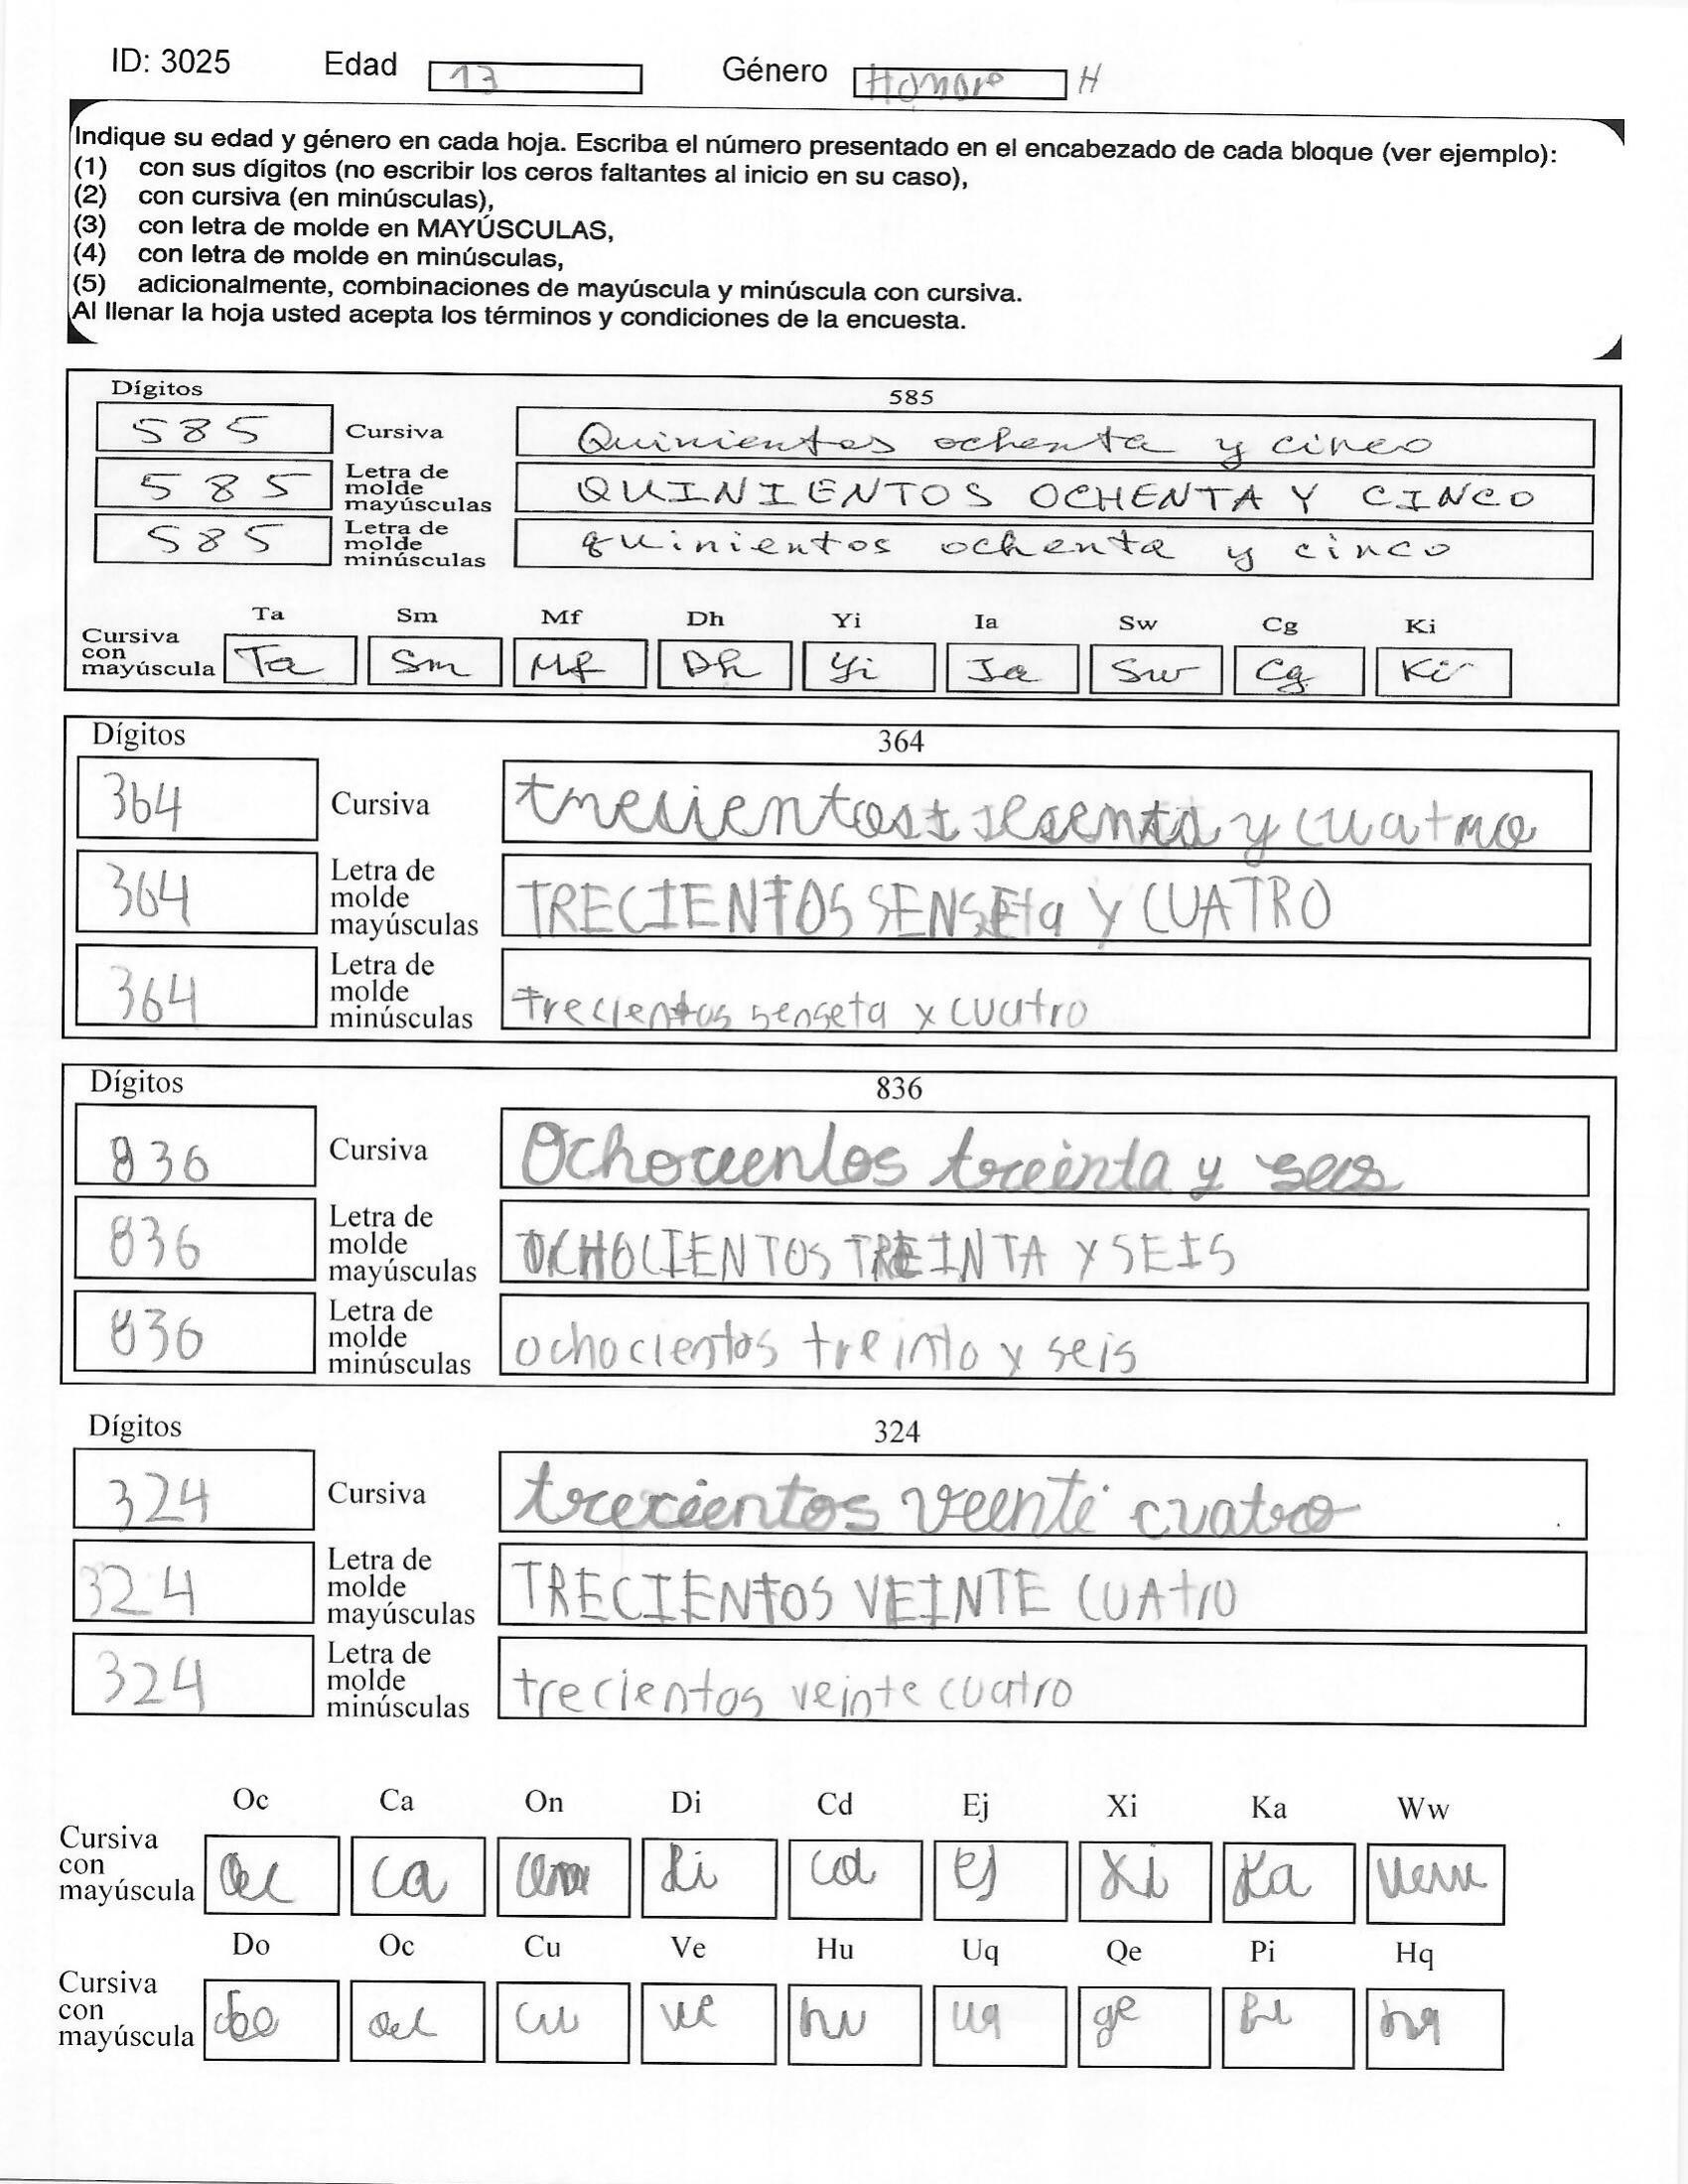 ID: 3025 Edad 13 Género H
Indique su edad y género en cada hoja. Escriba el número presentado en el encabezado de cada bloque (ver ejemplo):
(1) con sus dígitos (no escribir los ceros faltantes al inicio en su caso),
(2) con cursiva (en minúsculas),
(3) con letra de molde en MAYÚSCULAS,
(4) con letra de molde en minúsculas,
(5) adicionalmente, combinaciones de mayúscula y minúscula con cursiva.
Al llenar la hoja usted acepta los términos y condiciones de la encuesta.
Dígitos 585
585 Cursiva Quinientos ochenta y cinco
585 Letra de molde mayúsculas QUINIENTOS OCHENTA Y CINCO
585 Letra de molde minúsculas quinientos ochenta y cinco
Ta Sm Mf Dh Yi Ia Sw Cg Ki
Cursiva con mayúscula Ta Sm Mf Dh Yi Ia Sw Cg Ki
Dígitos 364
364 Cursiva trecientos y cuatro
364 Letra de molde mayúsculas TRECIENTOS SENSEta Y CUATRO
364 Letra de molde minúsculas trecientos senseta y cuatro
Dígitos 836
836 Cursiva Ochocientos treinta y seis
836 Letra de molde mayúsculas OCHOCIENTOS TREINTA Y SEIS
836 Letra de molde minúsculas ochocientos treinta y seis
Dígitos 324
324 Cursiva trecientos veinte cuatro
324 Letra de molde mayúsculas TRECIENTOS VEINTE CUAtrO
324 Letra de molde minúsculas trecientos veinte cuatro
Oc Ca On Di Cd Ej Xi Ka Ww
Cursiva con mayúscula Oc ca On Di cd ej Xi Ka Ww
Do Oc Cu Ve Hu Uq Qe Pi Hq
Cursiva con mayúscula Do oc cu ve hu uq qe Pi hq